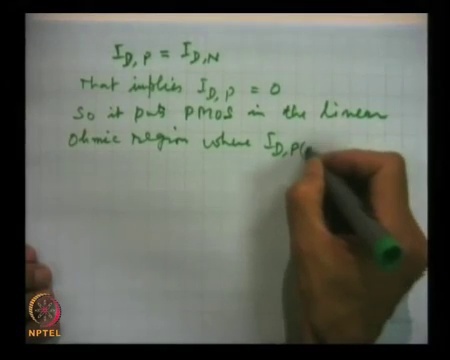 I_D,P = I_D,N
That implies I_D,P = 0
So it puts PMOS in the linear
Ohmic region where I_D,P(
NPTEL